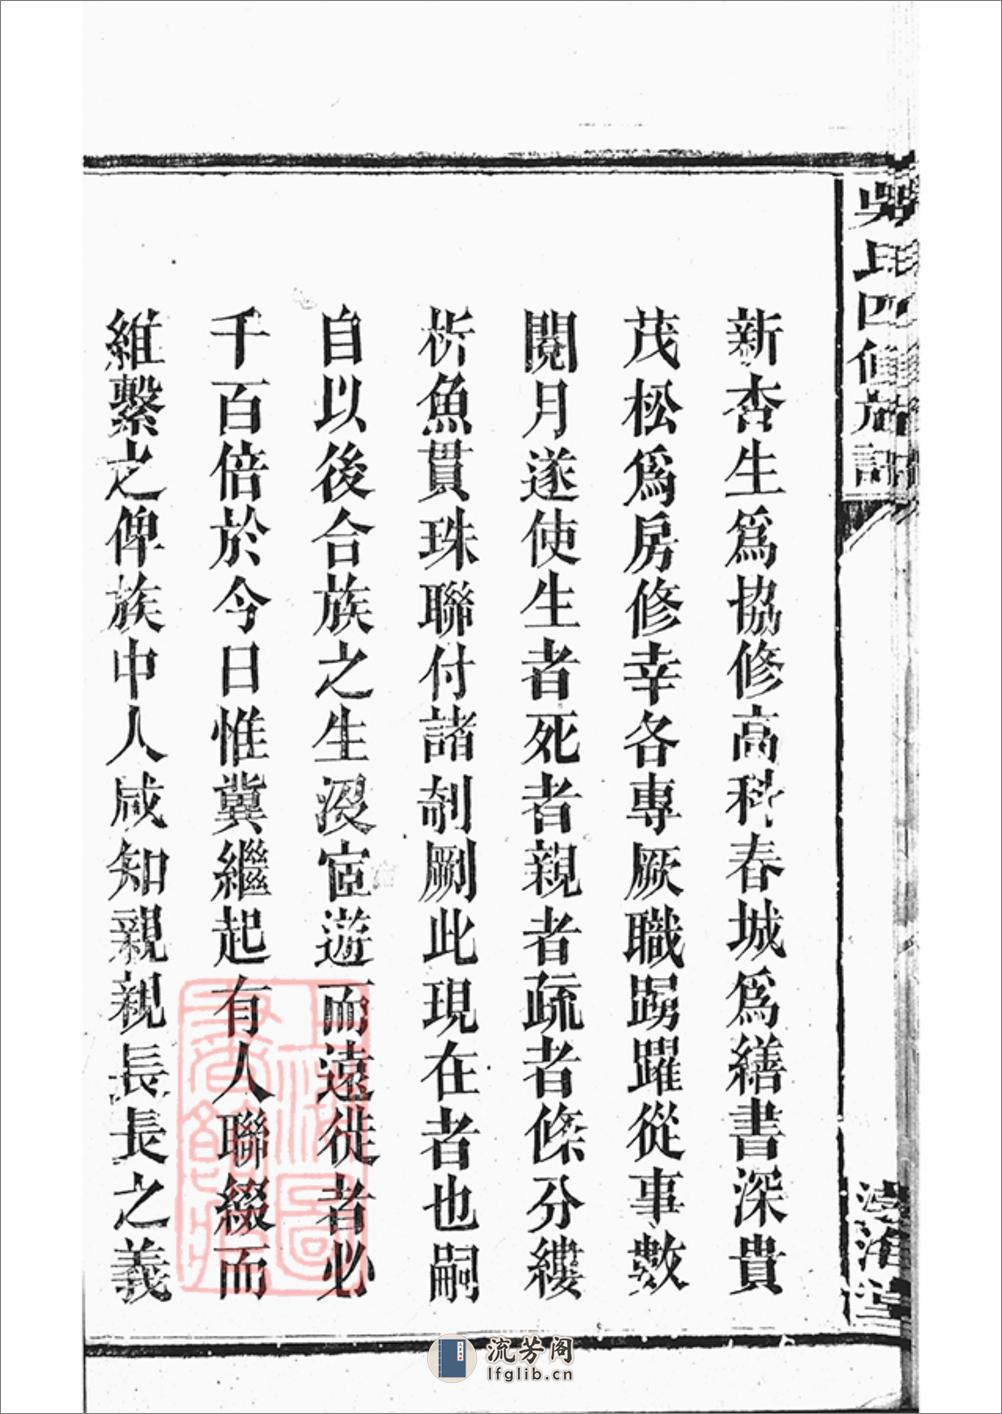 吳氏四修族譜
新杏生爲協修高科春城爲繕書深貴
茂松爲房修幸各專厥職踴躍從事數
閱月遂使生者死者親者疏者條分縷
析魚貫珠聯付諸剞劂此現在者也嗣
自以後合族之生沒宦遊而遠徙者必
千百倍於今日惟冀繼起有人聯綴而
維繫之俾族中人咸知親親長長之義
上海圖書館藏
流芳阁
lfglib.cn